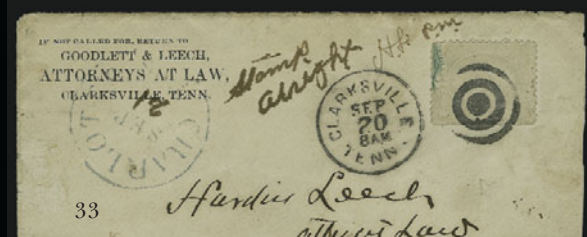 IF NOT CALLED FOR, RETURN TO
GOODLETT & LEECH,
ATTORNEYS AT LAW,
CLARKSVILLE, TENN.
Stamp
alright
CLARKSVILLE
SEP
20
8AM
TENN.
CHARLOT
SEP
33
Hardin Leech
Law